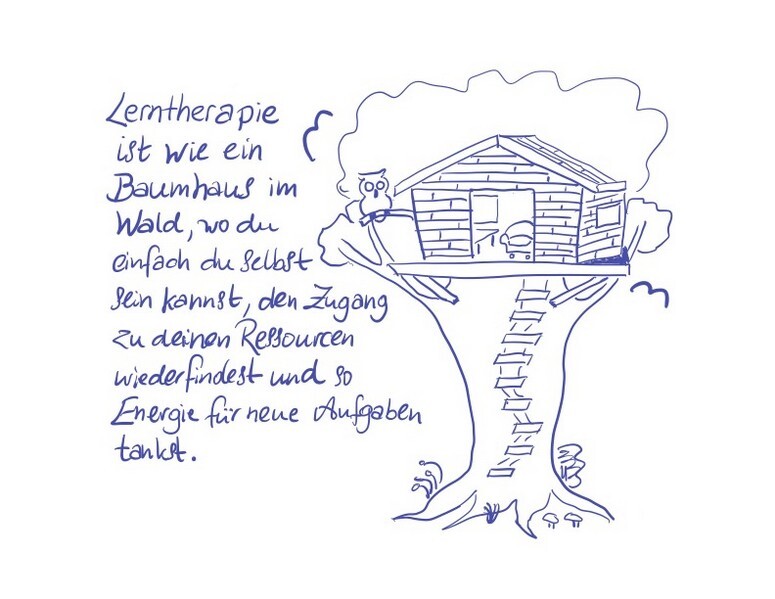 Lerntherapie
ist wie ein
Baumhaus im
Wald, wo du
einfach du selbst
sein kannst, den Zugang
zu deinen Ressourcen
wiederfindest und so
Energie für neue Aufgaben
tankst.